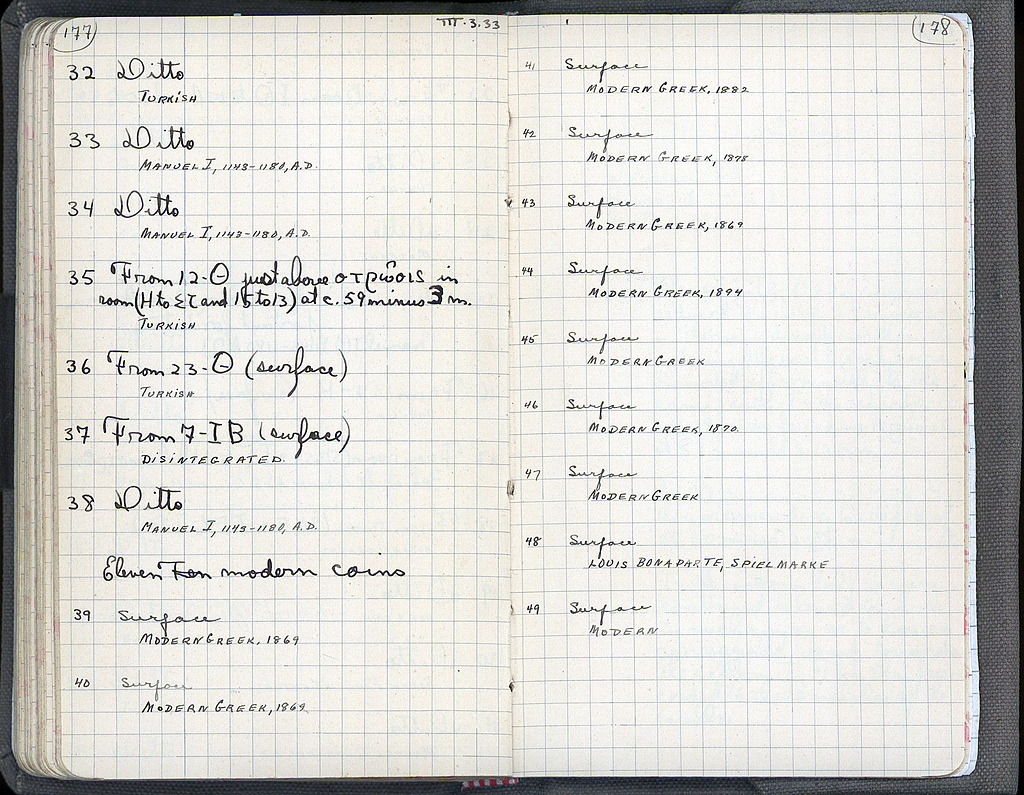 177
III·3.33
32 Ditto
TURKISH
33 Ditto
MANUEL I, 1143-1180, A.D.
34 Ditto
MANUEL I, 1143-1180, A.D.
35 From 12-Θ just above στρῶσις in
room (H to ΣΤ and 15 to 13) at c. 59 minus 3 m.
TURKISH
36 From 23-Θ (surface)
TURKISH
37 From 7-IB (surface)
DISINTEGRATED.
38 Ditto
MANUEL I, 1143-1180, A.D.
Eleven Ten modern coins
39 Surface
MODERN GREEK, 1869
40 Surface
MODERN GREEK, 1869
178
41 Surface
MODERN GREEK, 1882
42 Surface
MODERN GREEK, 1878
43 Surface
MODERN GREEK, 1869
44 Surface
MODERN GREEK, 1894
45 Surface
MODERN GREEK
46 Surface
MODERN GREEK, 1870.
47 Surface
MODERN GREEK
48 Surface
LOUIS BONAPARTE, SPIEL MARKE
49 Surface
MODERN